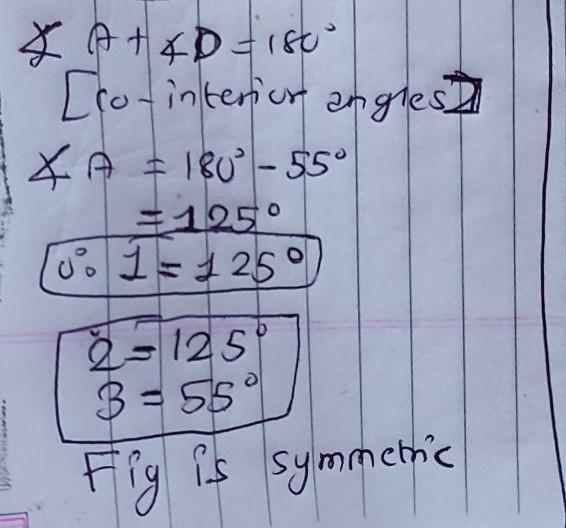 ∡ A + ∡D = 180°
[co-interior angles]
∡ A = 180° - 55°
= 125°
∴ 1 = 125°
2 = 125°
3 = 55°
Fig is symmetric